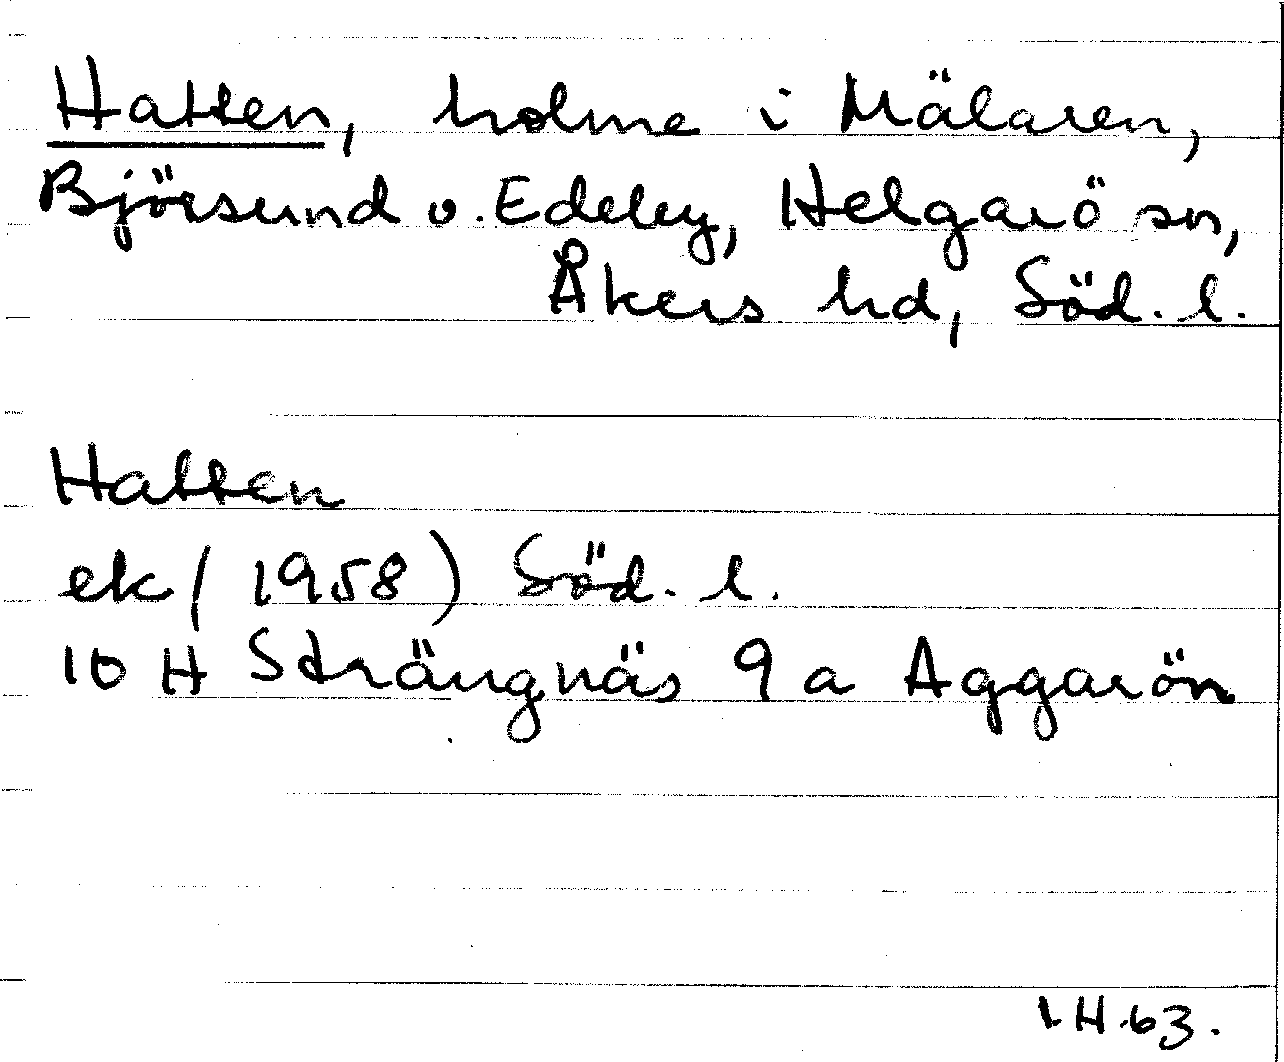 Hatten, holme i Mälaren,
Björsund o. Edeby, Helgarö sn,
Åkers hd, Söd. l.
Hatten
ek (1958) Söd. l.
10 H Strängnäs 9 a Aggarön
I.H.63.